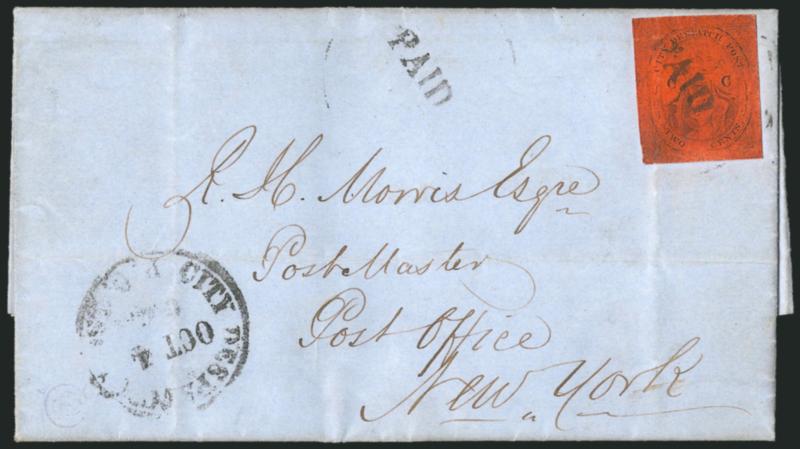 PAID
CITY DESPATCH POST
C
PAID
TWO CENTS
R. H. Morris Esqre
Post Master
Post Office
New York
CITY DESPATCH
OCT 4